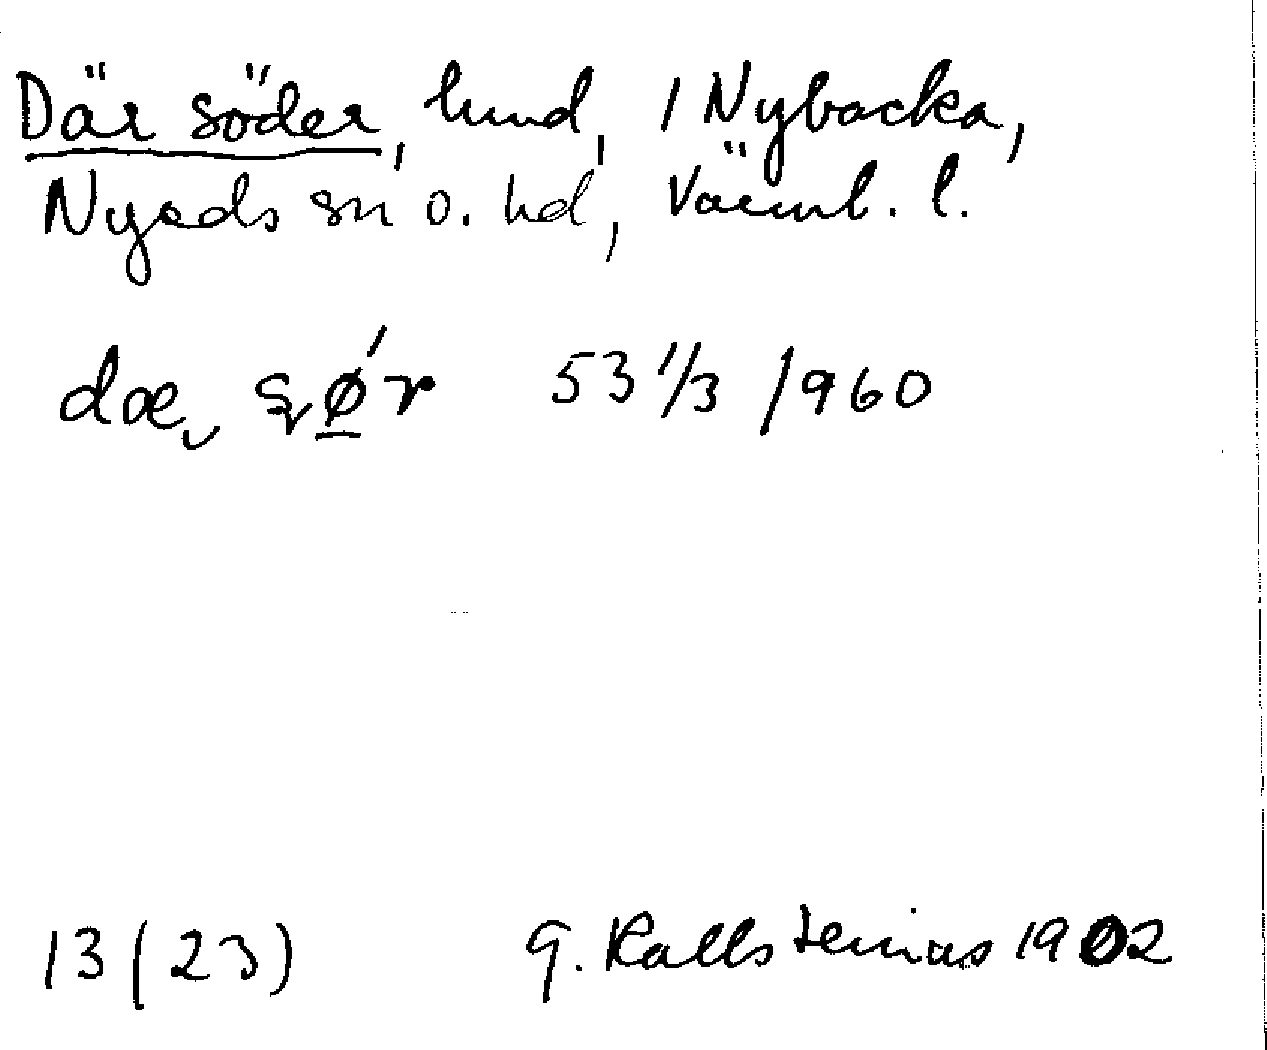 Där söder, lund, 1 Nybacka,
Nyeds sn o. hd, Värml. l.
dæ sǿr 53 1/3 /960
13 (23) G. Kallstenius 1902